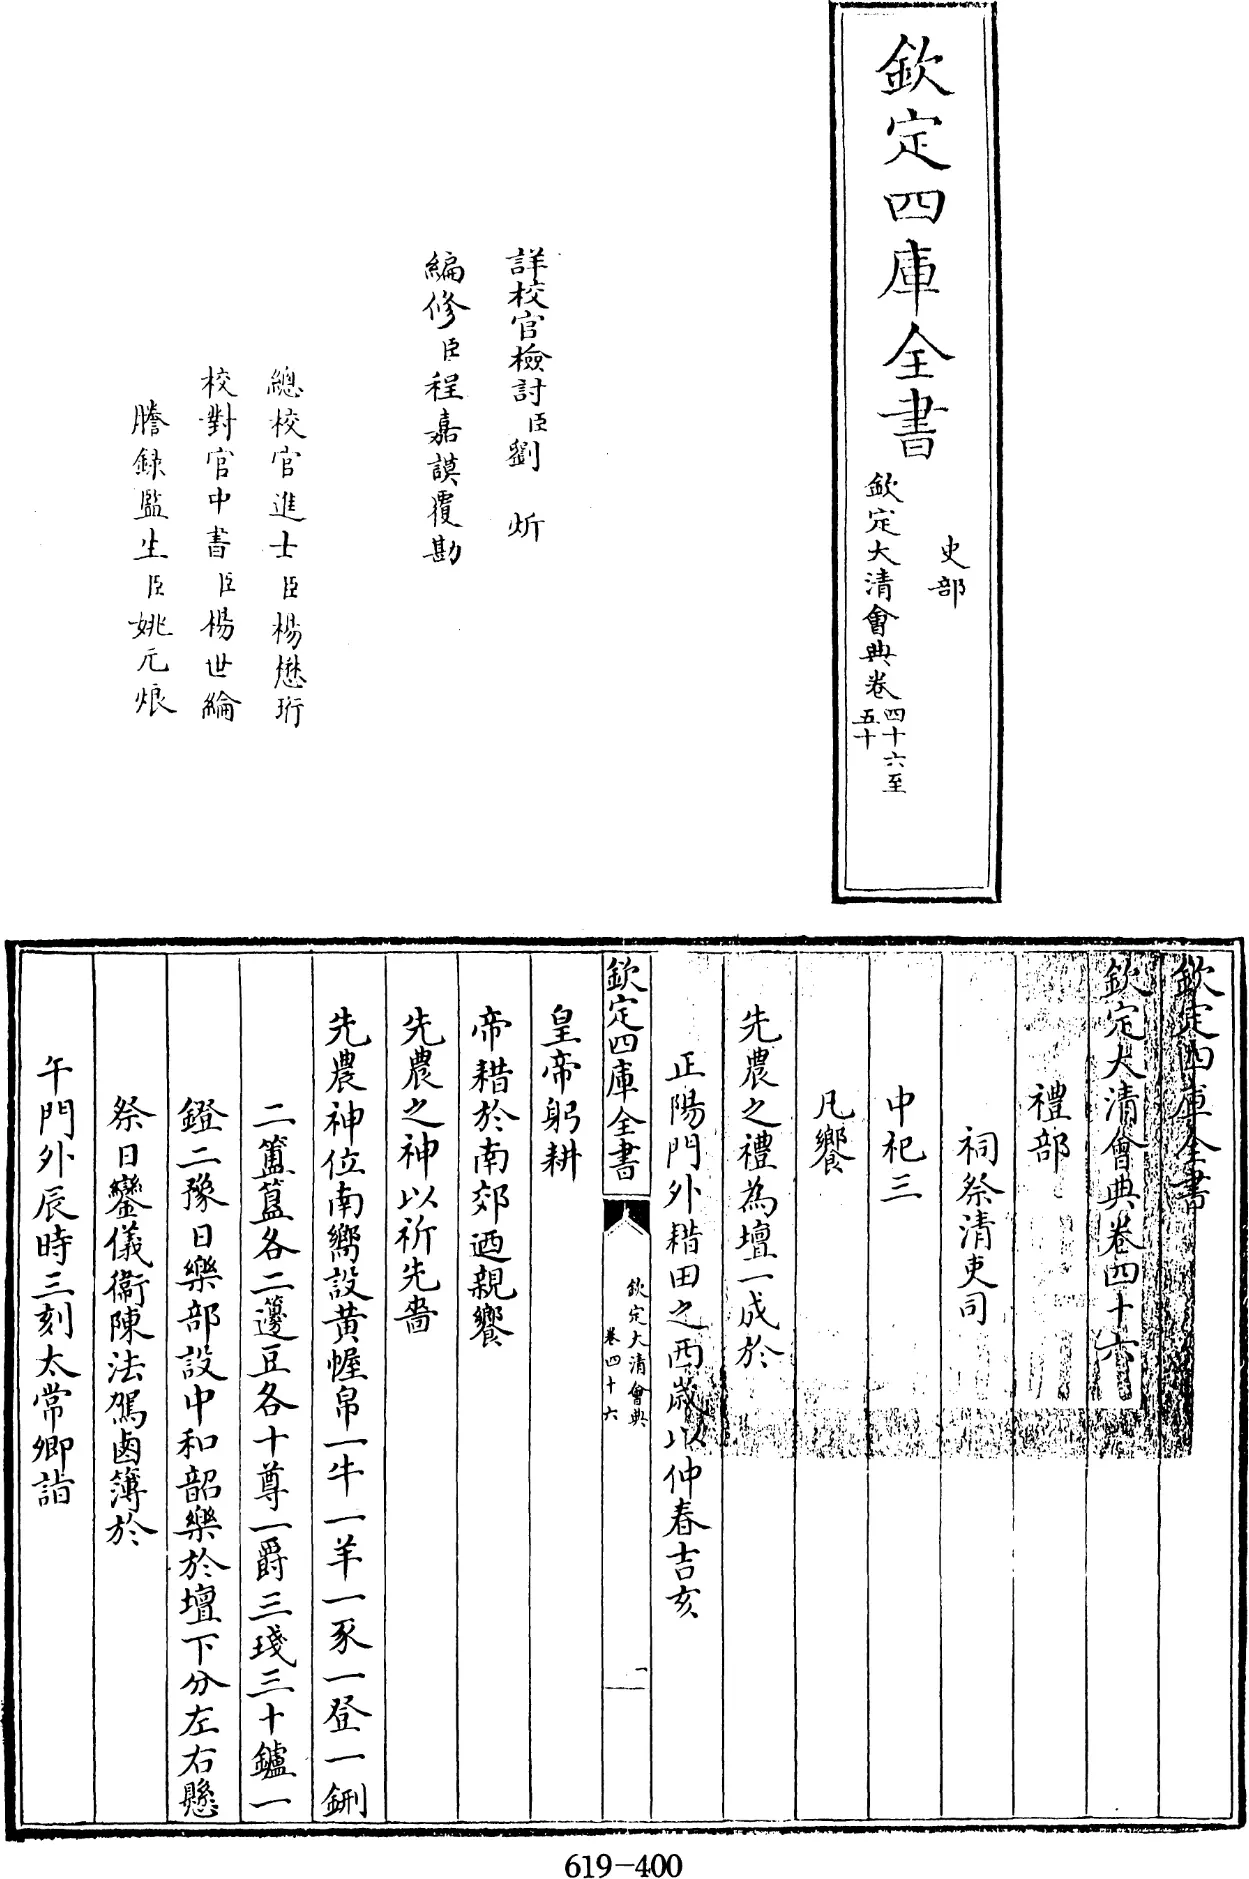 欽定四庫全書
史部
欽定大清會典卷四十六至
五十
詳校官檢討臣劉炘
編修臣程嘉謨覆勘
總校官進士臣楊懋珩
校對官中書臣楊世綸
謄錄監生臣姚元烺
欽定四庫全書
欽定大清會典卷四十六
禮部
祠祭清吏司
中祀三
凡饗
先農之禮為壇一成於
正陽門外耤田之西歲以仲春吉亥
欽定四庫全書
欽定大清會典
卷四十六
一
皇帝躬耕
帝耤於南郊迺親饗
先農之神以祈先嗇
先農神位南嚮設黃幄帛一牛一羊一豕一登一鉶
二簠簋各二籩豆各十尊一爵三琖三十鑪一
鐙二豫日樂部設中和韶樂於壇下分左右懸
祭日鑾儀衞陳法駕鹵簿於
午門外辰時三刻太常卿詣
619-400